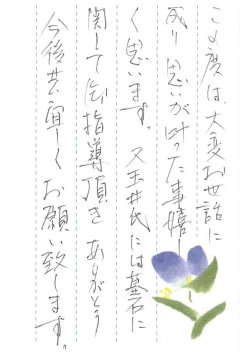 この度は、大変お世話に
成り思いが叶った事嬉し
く思います。又玉井氏には墓石に
関して御指導頂きありがとう
今後共宜しくお願い致します。